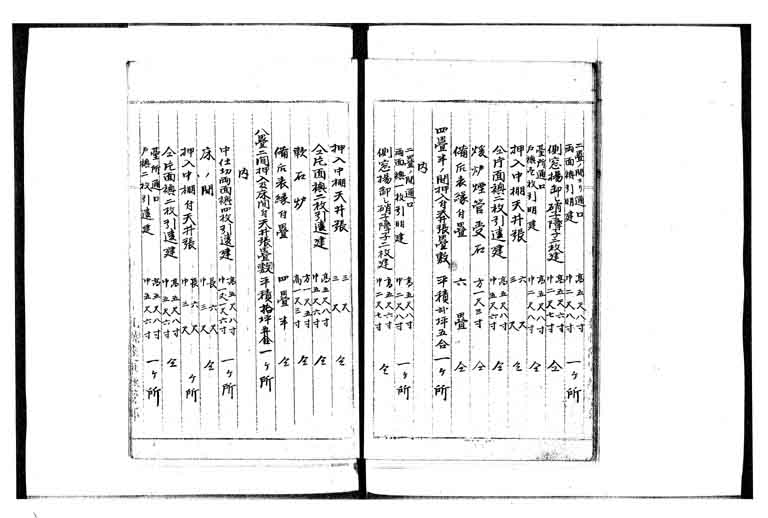 二疊ノ間ヨリ通口 高五尺八寸
両面襖引明建 巾二尺八寸 一ヶ所
側窓揚卸し硝子障子二枚建 高五尺六寸 巾二尺七寸 仝
臺所通口 高五尺八寸
戸襖壱枚引明建 巾二尺八寸 仝
押入中棚天井張 六尺 三尺 仝
仝片面襖二枚引違建 高五尺八寸 巾五尺六寸 仝
煖炉煙管受石 方一尺三寸 仝
備后表縁付疊 六疊 仝
四疊半ノ間押入付天井張疊敷 平積 坪五合 一ヶ所
内
二疊ノ間通口 高五尺八寸
両面襖一枚引明建 巾二尺八寸 一ヶ所
側窓揚卸し硝子障子二枚建 高五尺六寸 巾二尺七寸 仝
押入中棚天井張 三尺 三尺 仝
仝片面襖二枚引違建 高五尺八寸 巾五尺六寸 仝
軟石炉 方一尺五寸 高一尺三寸 仝
備后表縁付疊 四疊半 仝
八疊二間押入及床間付天井張疊敷 平積拾坪 一ヶ所
内
中仕切両面襖四枚引違建 高五尺八寸 一ヶ所
床ノ間 長六尺 巾三尺 仝
押入中棚付天井張 長六尺 巾三尺 一ヶ所
仝片面襖二枚引違建 高五尺八寸 巾五尺六寸 仝
臺所通口 高五尺八寸
戸襖二枚引違建 巾五尺六寸 一ヶ所